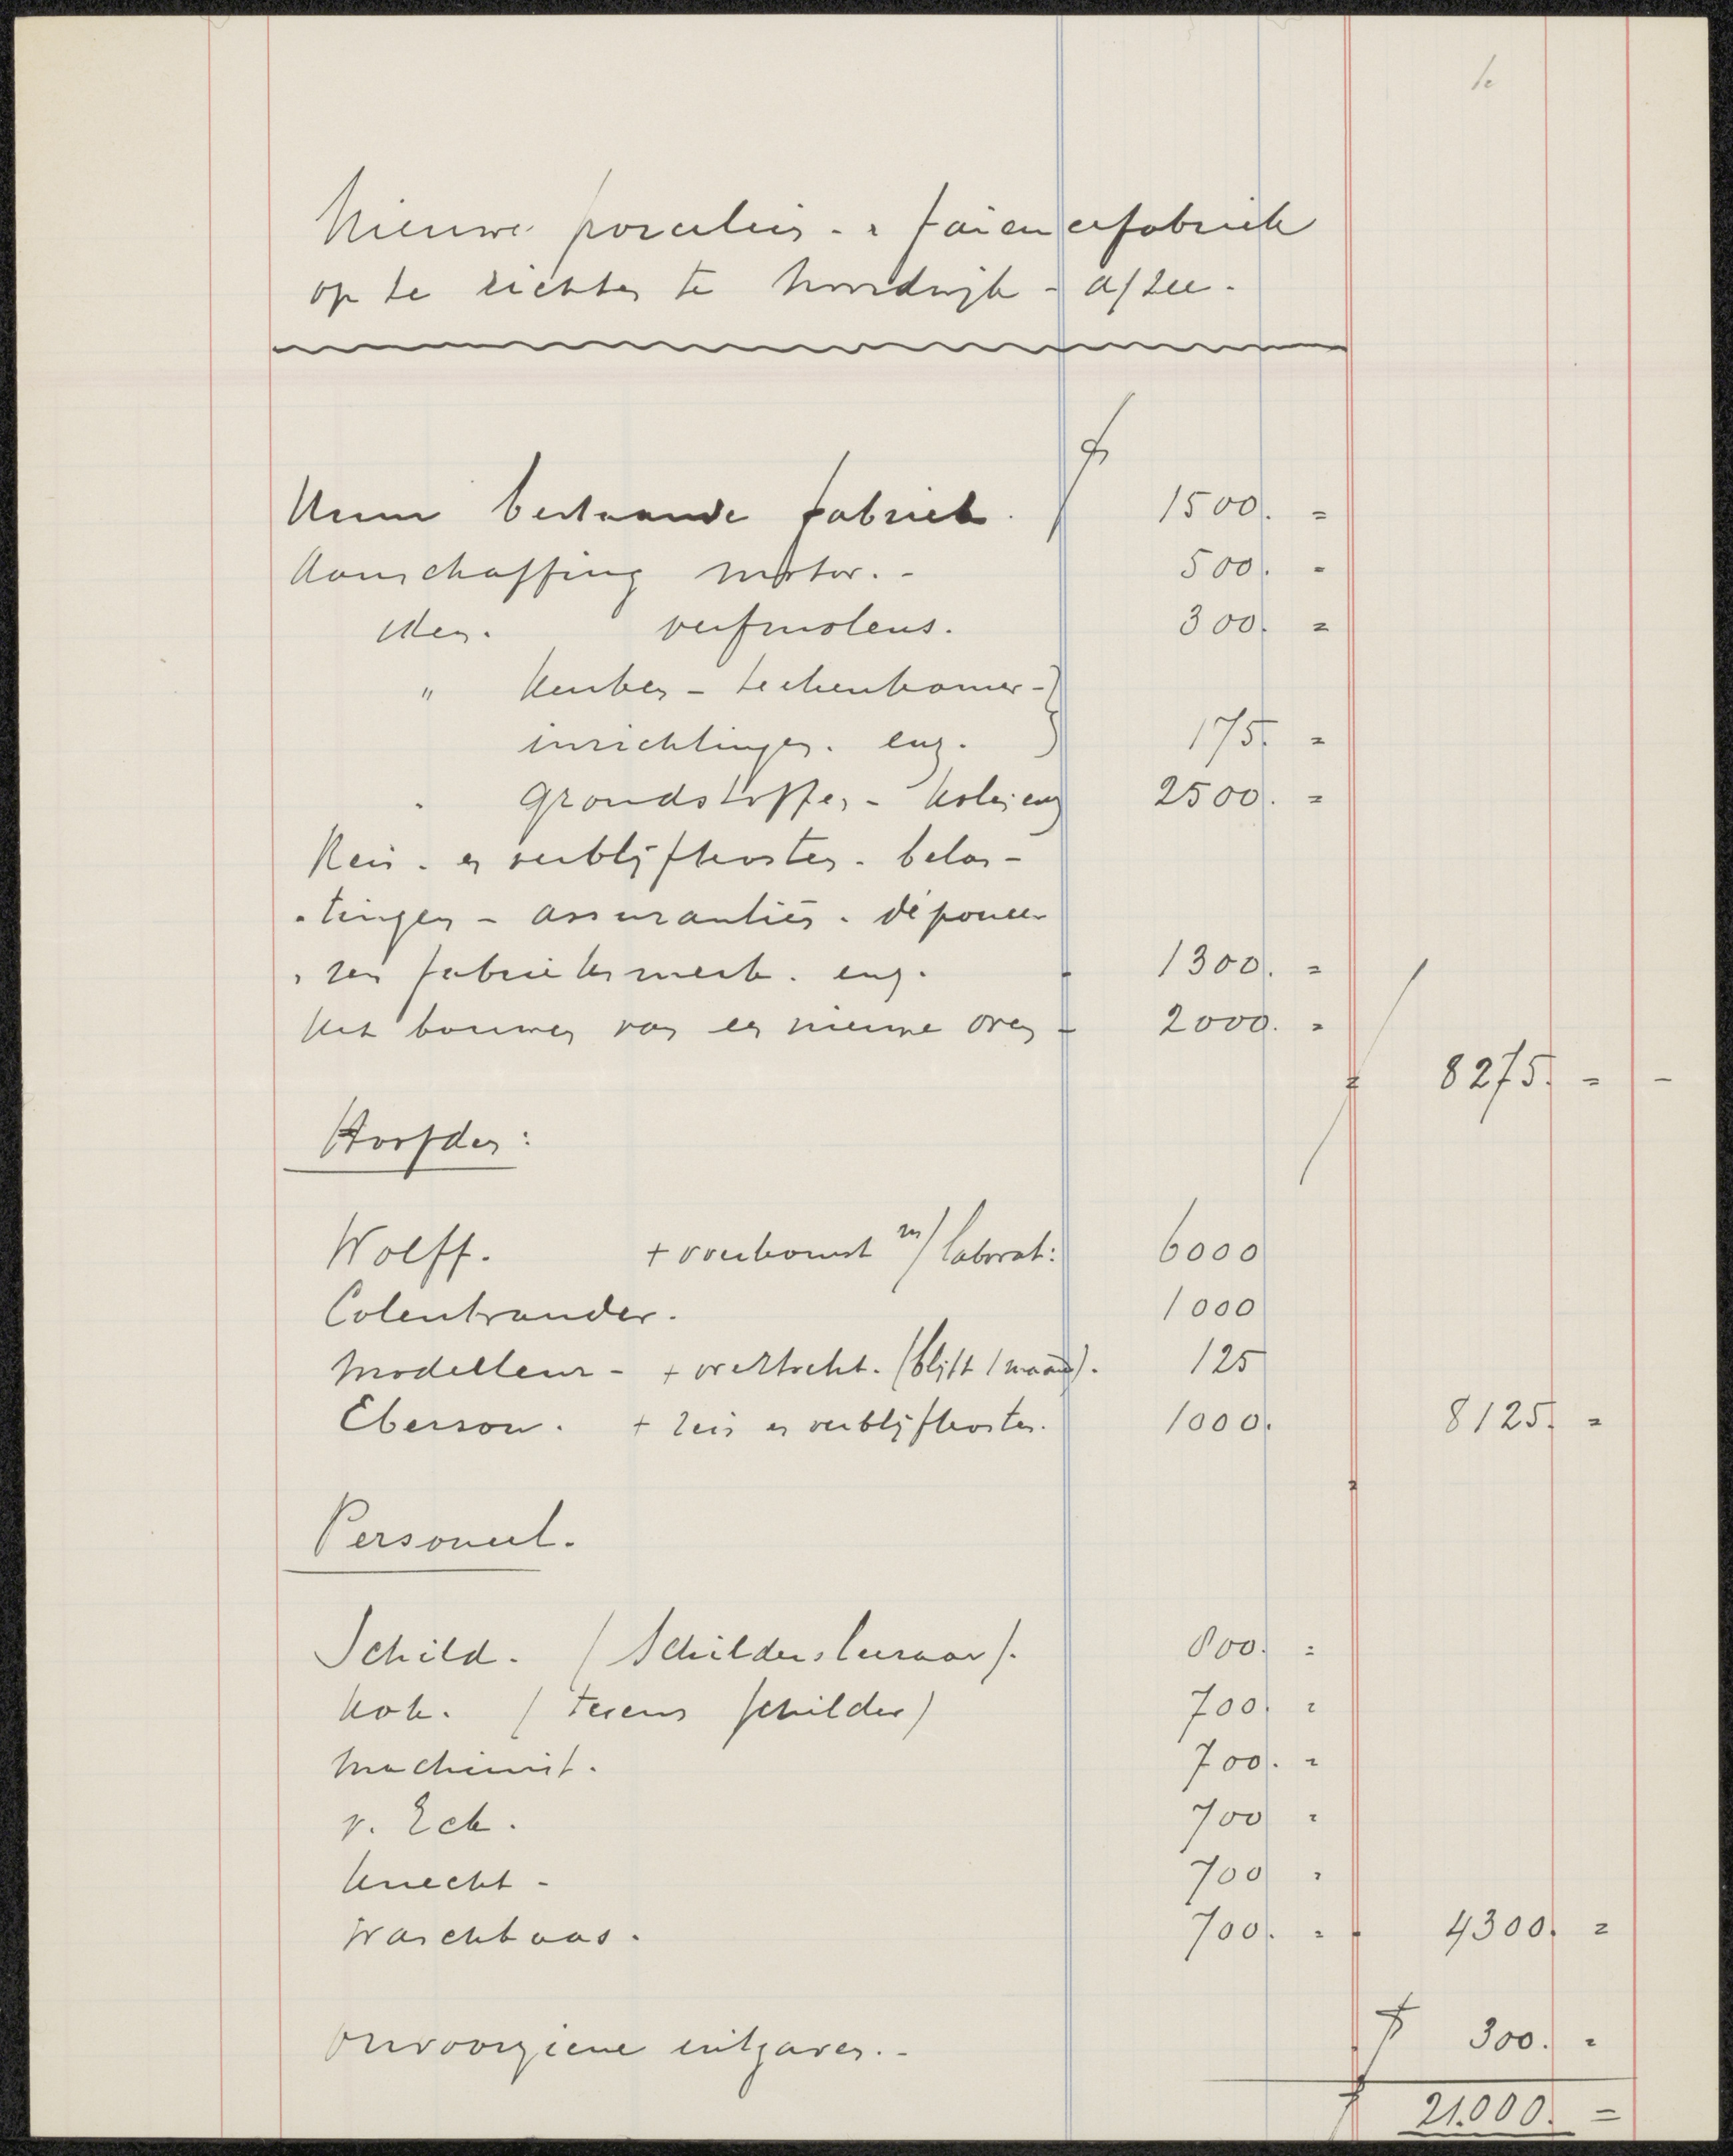 1e
Nieuwe porcelein- & faiencefabriek
op te richten te Noordwijk - a/zee.
f
Huur bestaande fabriek. f 1500. =
Aanschaffing motor. - 500. =
idem. verfmolens. 300. =
" keuken - teekenkamer-
inrichtingen. enz. 175. =
" grondstoffen - kolen enz 2500. =
Reis- en verblijfkosten. belas-
-tingen - assurantiën. déponee-
-ren fabrieksmerk. enz. - 1300. =
Het bouwen van een nieuwe oven - 2000. =
f 8275. = -
Hoofden:
Wolff. + overkomst m/ laborat: 6000
Colenbrander. 1000
Modelleur - + overtocht. (blijft 1 maand). 125
Eberson. + reis en verblijfkosten. 1000. 8125. =
Personeel.
Schild. (Schildersleeraar). 800. =
Kok. (tevens schilder) 700. =
Machinist. 700. =
v. Eck. 700 =
Knecht - 700 =
Waschbaas. 700. = - 4300. =
Onvoorziene uitgaven. - f 300. =
f 21.000. =